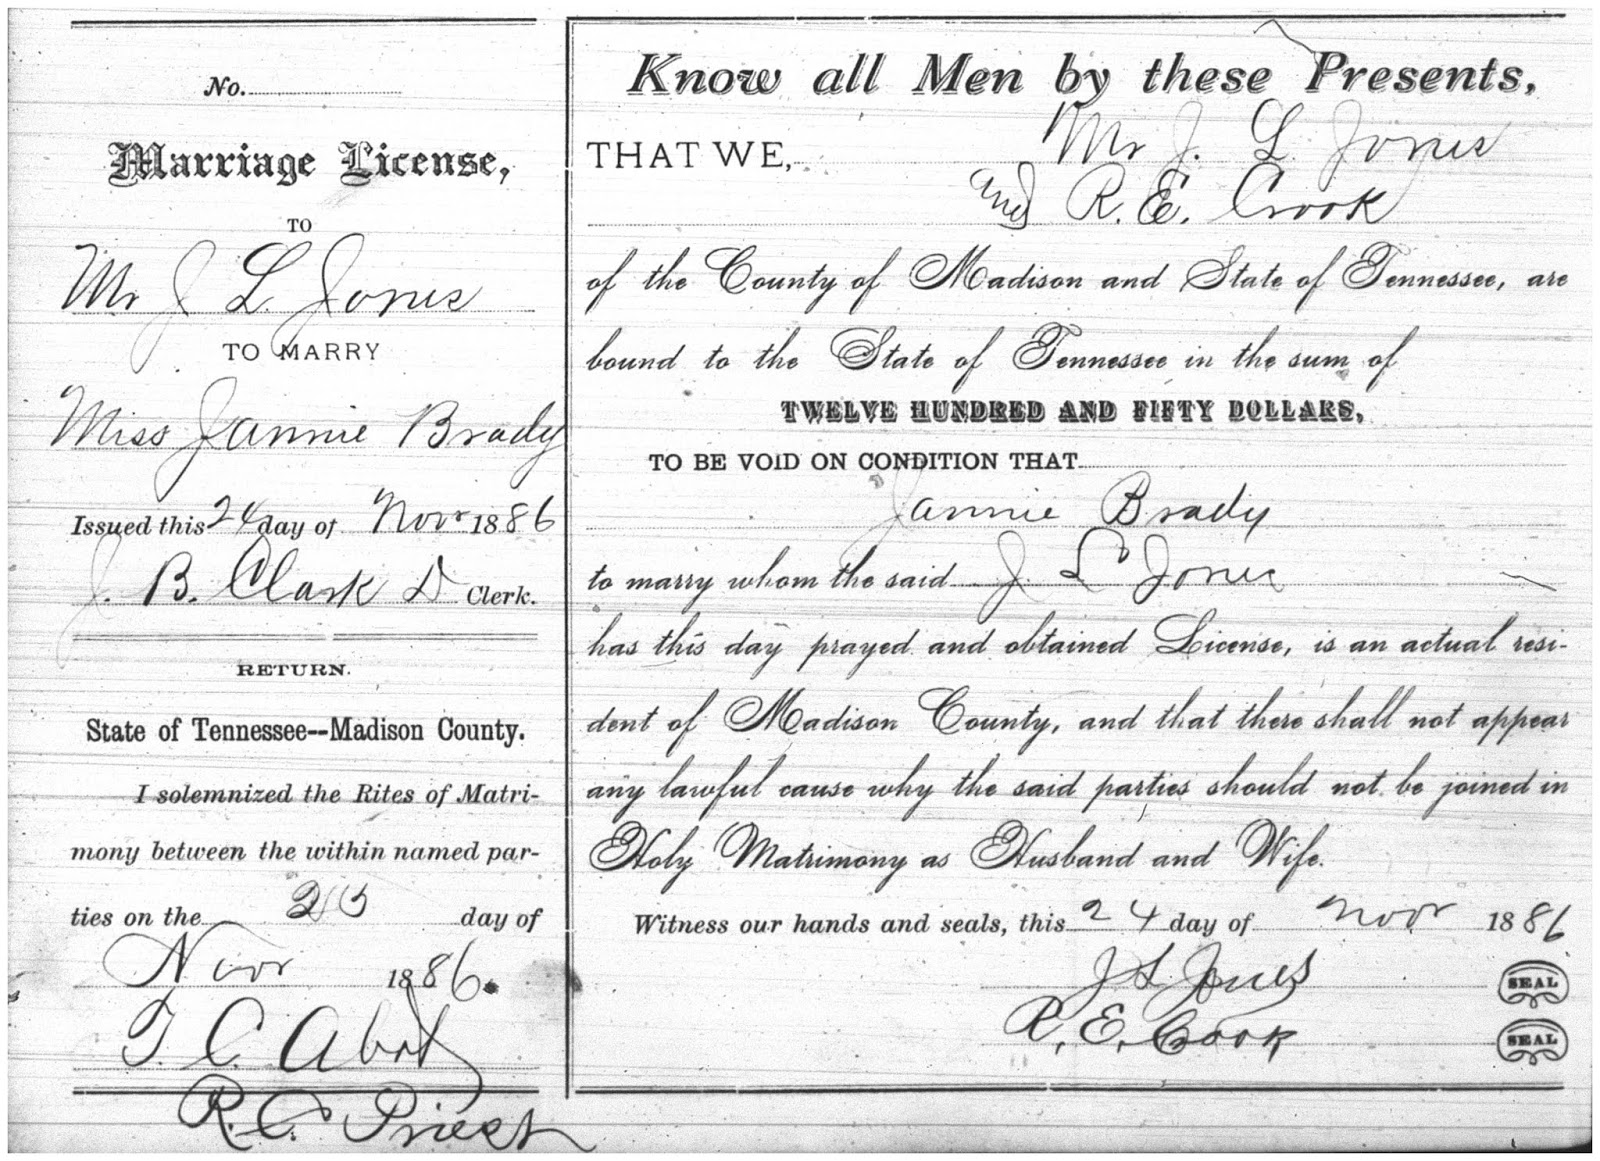 No.
Marriage License,
TO
Mr J L. Jones
TO MARRY
Miss Jannie Brady
Issued this 24 day of Novr 1886
J. B. Clark D Clerk.
RETURN.
State of Tennessee--Madison County.
I solemnized the Rites of Matri-
mony between the within named par-
ties on the day of
Novr 1886.
T. C. Abot
R. C. Priest
Know all Men by these Presents,
THAT WE, Mr J. L. Jones
and R. E. Crook
of the County of Madison and State of Tennessee, are
bound to the State of Tennessee in the sum of
TWELVE HUNDRED AND FIFTY DOLLARS,
TO BE VOID ON CONDITION THAT
Jannie Brady
to marry whom the said J. L Jones
has this day prayed and obtained License, is an actual resi-
dent of Madison County, and that there shall not appear
any lawful cause why the said parties should not be joined in
Holy Matrimony as Husband and Wife.
Witness our hands and seals, this 24 day of Novr 1886
J L Jones SEAL
R. E. Crook SEAL